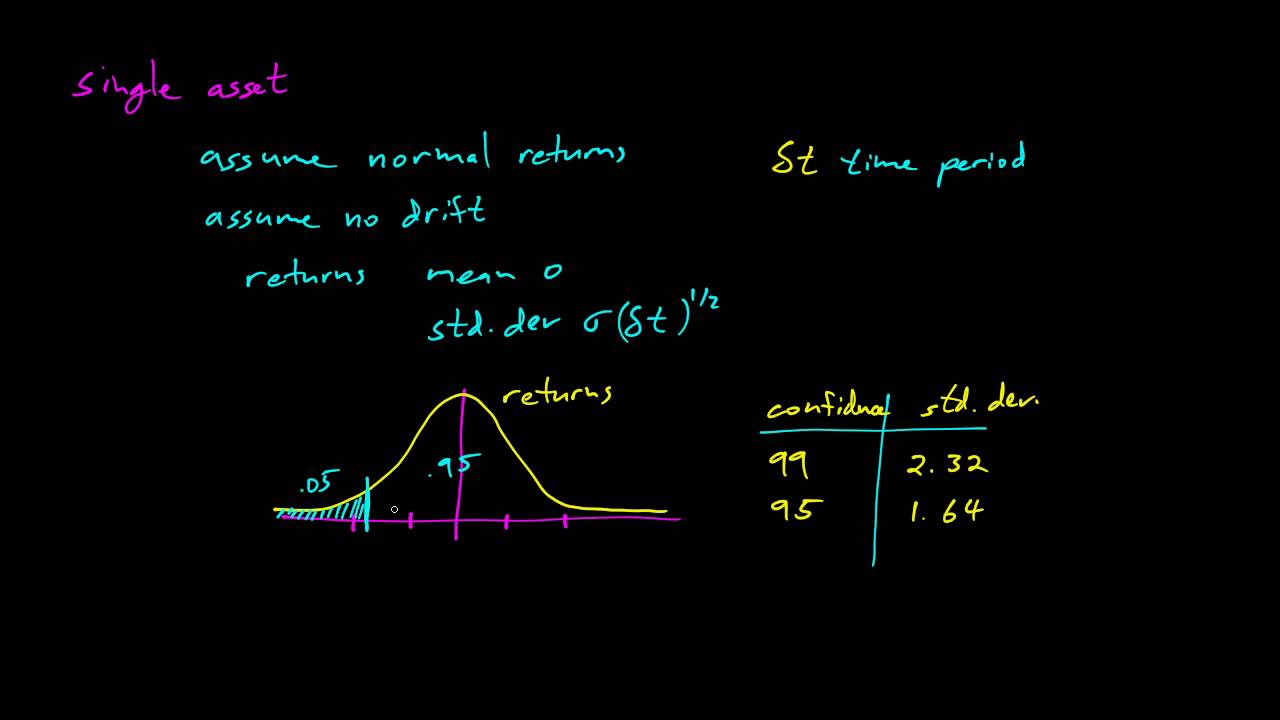 single asset
assume normal returns
δt time period
assume no drift
returns mean 0
std. dev σ(δt)^1/2
returns
.05
.95
confidnce std. dev.
99 2.32
95 1.64